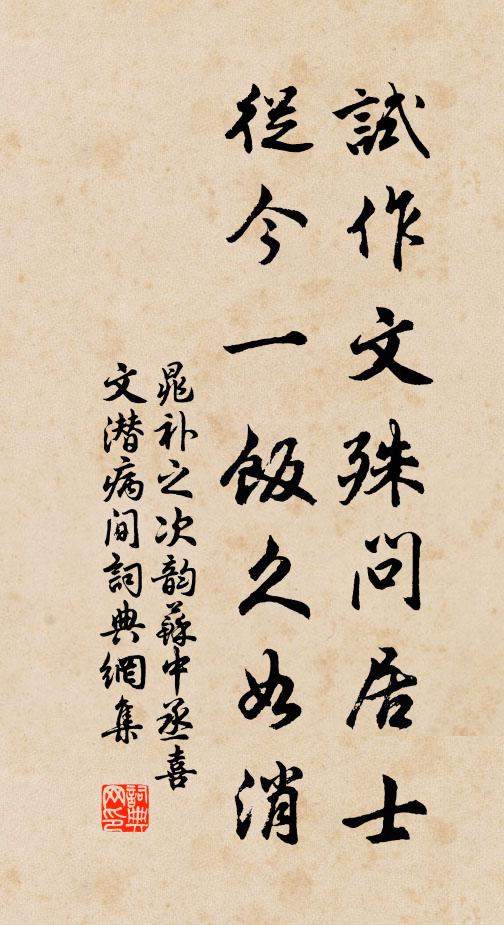 試作文殊問居士
從今一飯久如消
晁补之次韵蘇中丞喜
文潜病间詞典網集
詞典网印